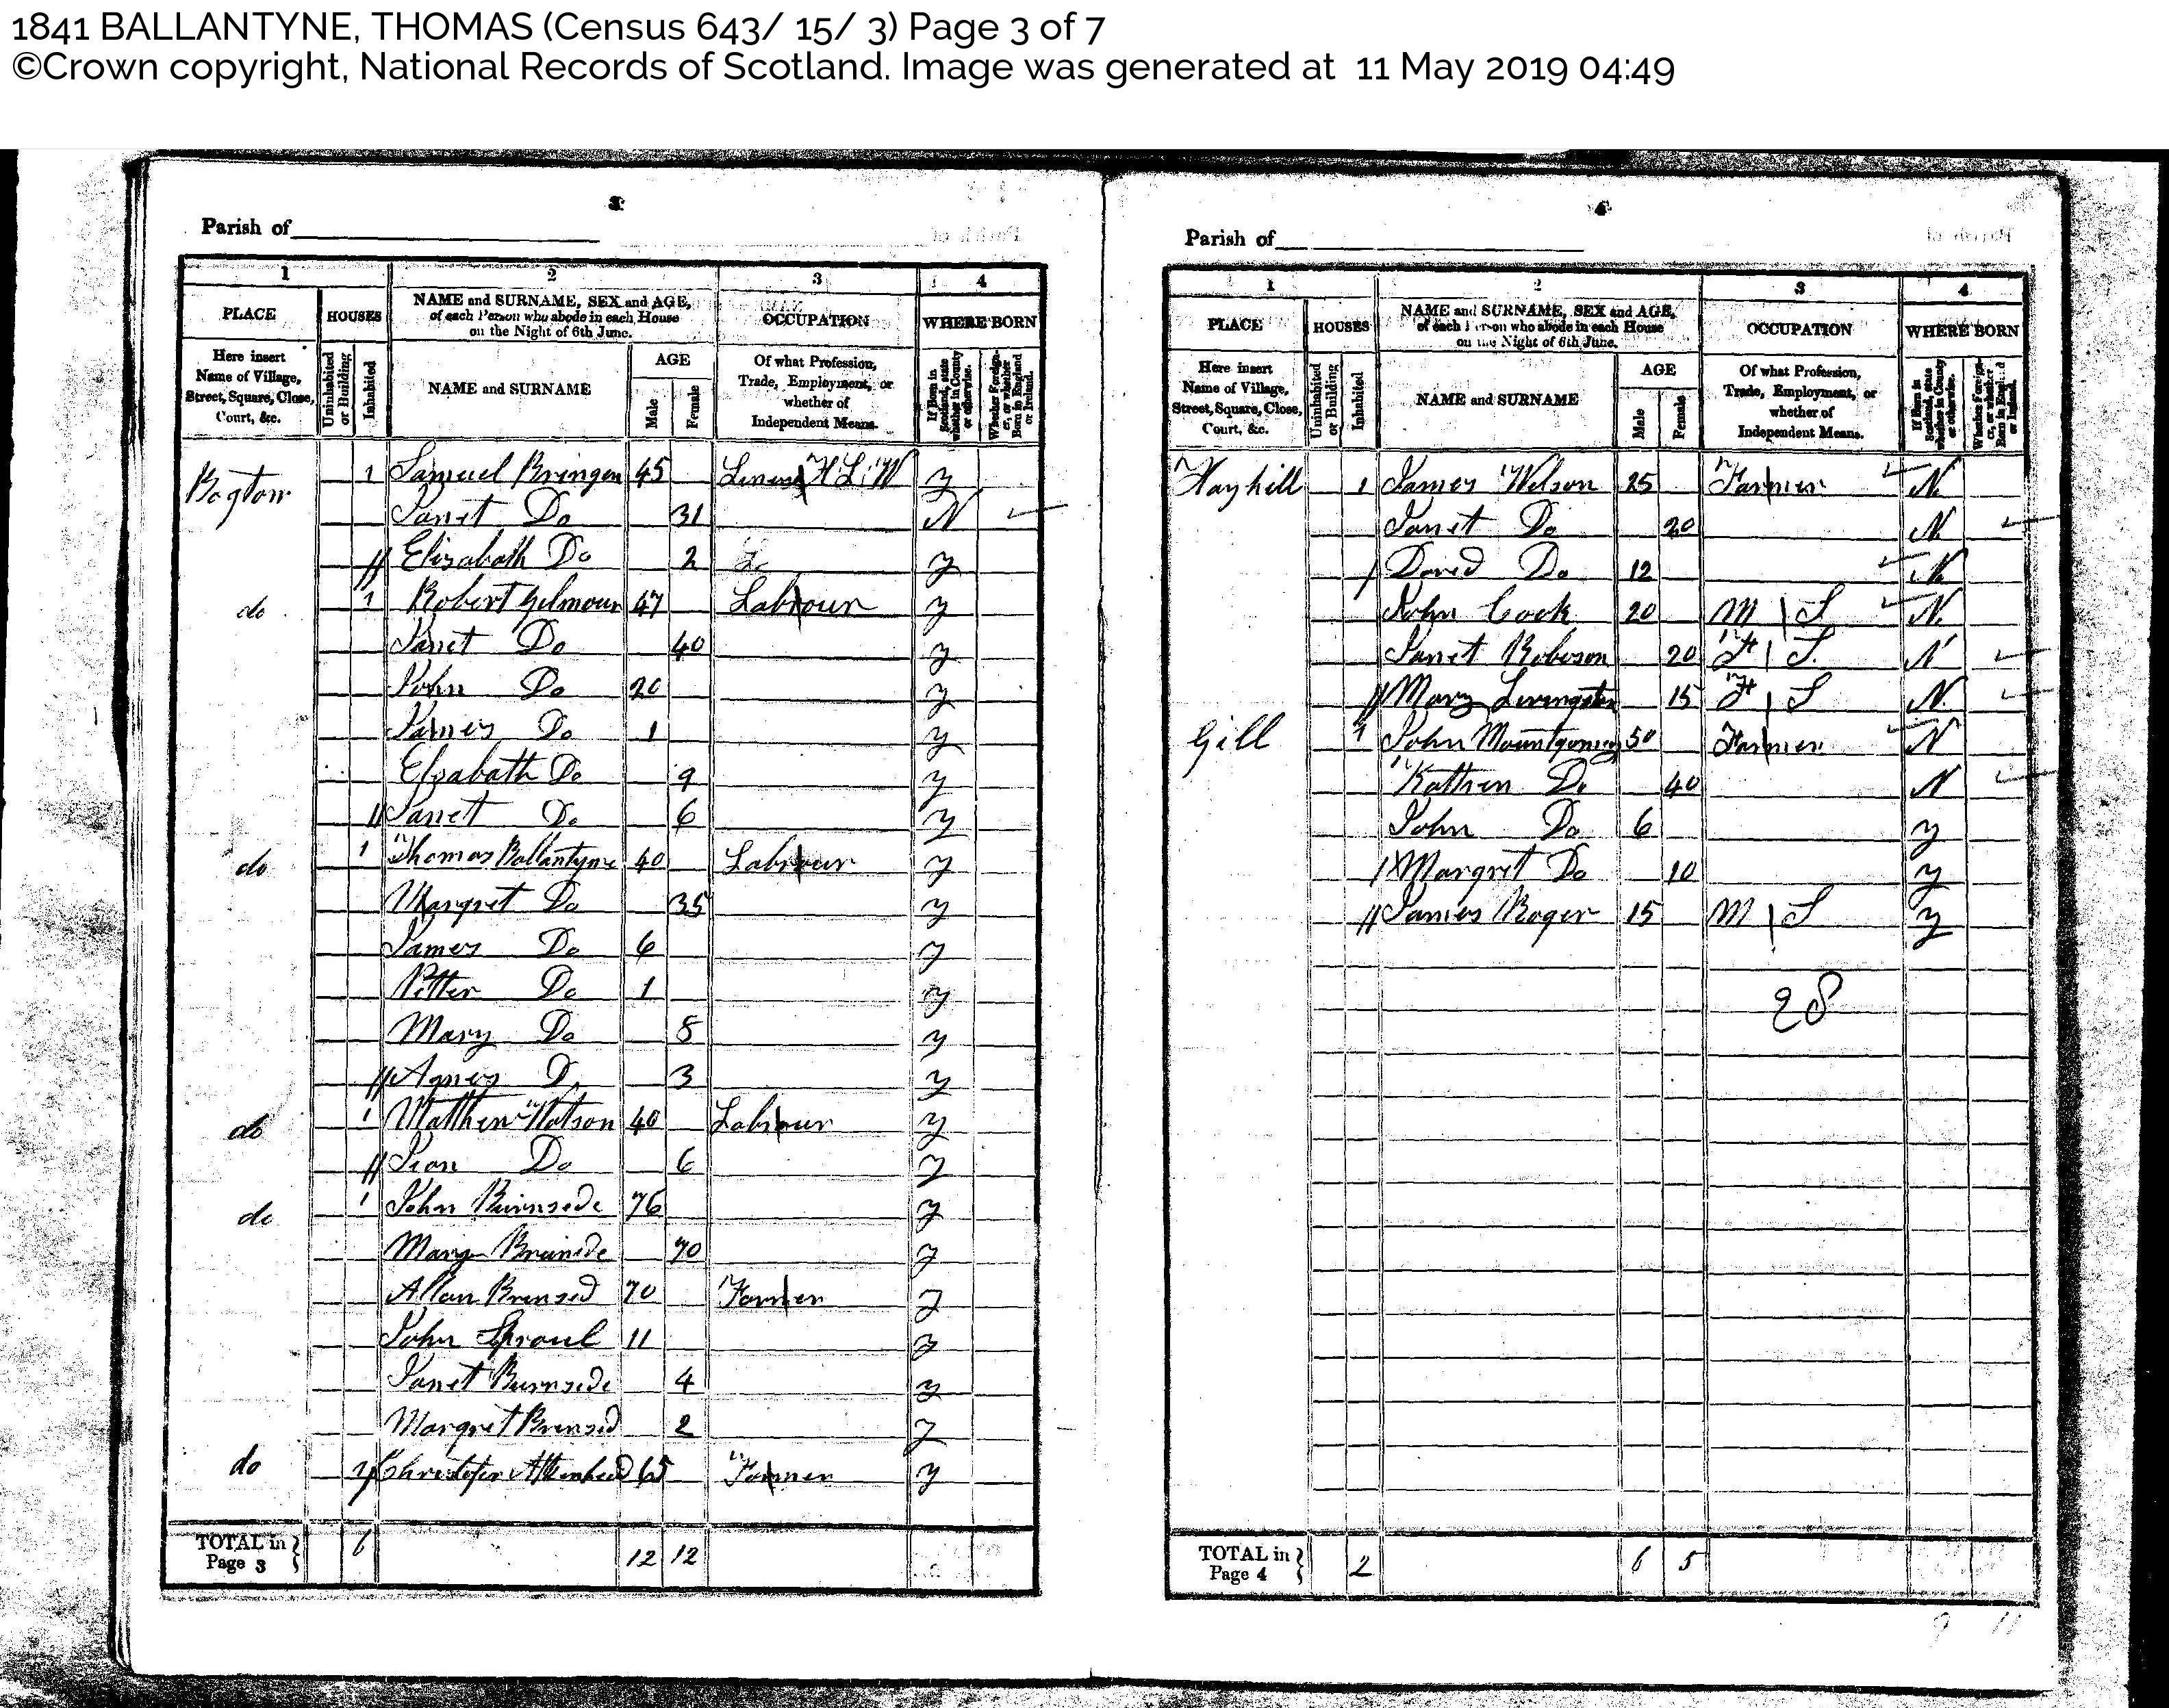 1841 BALLANTYNE, THOMAS (Census 643/ 15/ 3) Page 3 of 7
©Crown copyright, National Records of Scotland. Image was generated at 11 May 2019 04:49
3
Parish of
1 2 3 4
PLACE HOUSES NAME and SURNAME, SEX and AGE, of each Person who abode in each House on the Night of 6th June. OCCUPATION WHERE BORN
Here insert Name of Village, Street, Square, Close, Court, &c. Uninhabited or Building Inhabited NAME and SURNAME AGE Male Female Of what Profession, Trade, Employment, or whether of Independent Means. If Born in Scotland, state whether in County or otherwise. Whether Foreigner, or whether Born in England or Ireland.
Bogton 1 Samuel 45 Linen H L W y
Janet Do 31 N
Elizabath Do 2 y
do 1 Robert Gilmour 47 Labrour y
Janet Do 40 y
John Do 20 y
James Do 1 y
Elzabath Do 9 y
Janet Do 6 y
do 1 Thomas Ballantyne 40 Labrour y
Margret Do 35 y
James Do 6 y
Pitter Do 1 y
Mary Do 8 y
Agnes D 3 y
do 1 Matthew Watson 40 Labrour y
Jean Do 6 y
do 1 John Burnsede 76 y
Mary 70 y
Allan Brensed 70 Farmer y
John Sproul 11 y
Janet Burnsede 4 y
Margret Brensed 2 y
do 1 65 Farmer y
TOTAL in Page 3 6 12 12
4
Parish of
1 2 3 4
PLACE HOUSES NAME and SURNAME, SEX and AGE, of each Person who abode in each House on the Night of 6th June. OCCUPATION WHERE BORN
Here insert Name of Village, Street, Square, Close, Court, &c. Uninhabited or Building Inhabited NAME and SURNAME AGE Male Female Of what Profession, Trade, Employment, or whether of Independent Means. If Born in Scotland, state whether in County or otherwise. Whether Foreigner, or whether Born in England or Ireland.
Hayhill 1 James Wilson 25 Farmer N
Janet Do 20 N
David Do 12 N
John Cook 20 M S N
Janet Roboson 20 F S N
Mary Livingston 15 F S N
Gill 1 John Mountgomery 50 Farmer N
Kathren Do 40 N
John Do 6 y
Margret Do 10 y
James Roger 15 M S y
28
TOTAL in Page 4 2 6 5
9 11